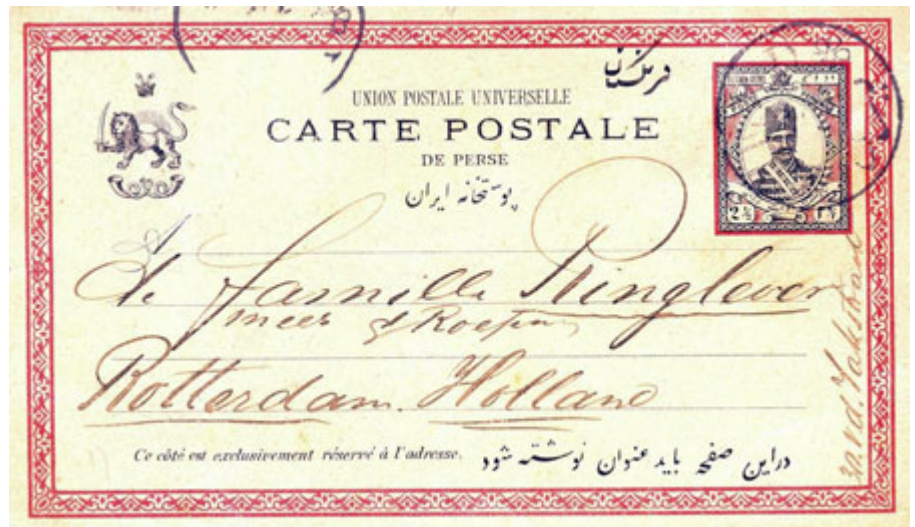 فرنگستان
UNION POSTALE UNIVERSELLE
CARTE POSTALE
DE PERSE
پوستخانه ایران
2½
de famille Ringlever
Rotterdam. Holland
Ce côté est exclusivement réservé à l'adresse.
دراین صفحه باید عنوان نوشته شود